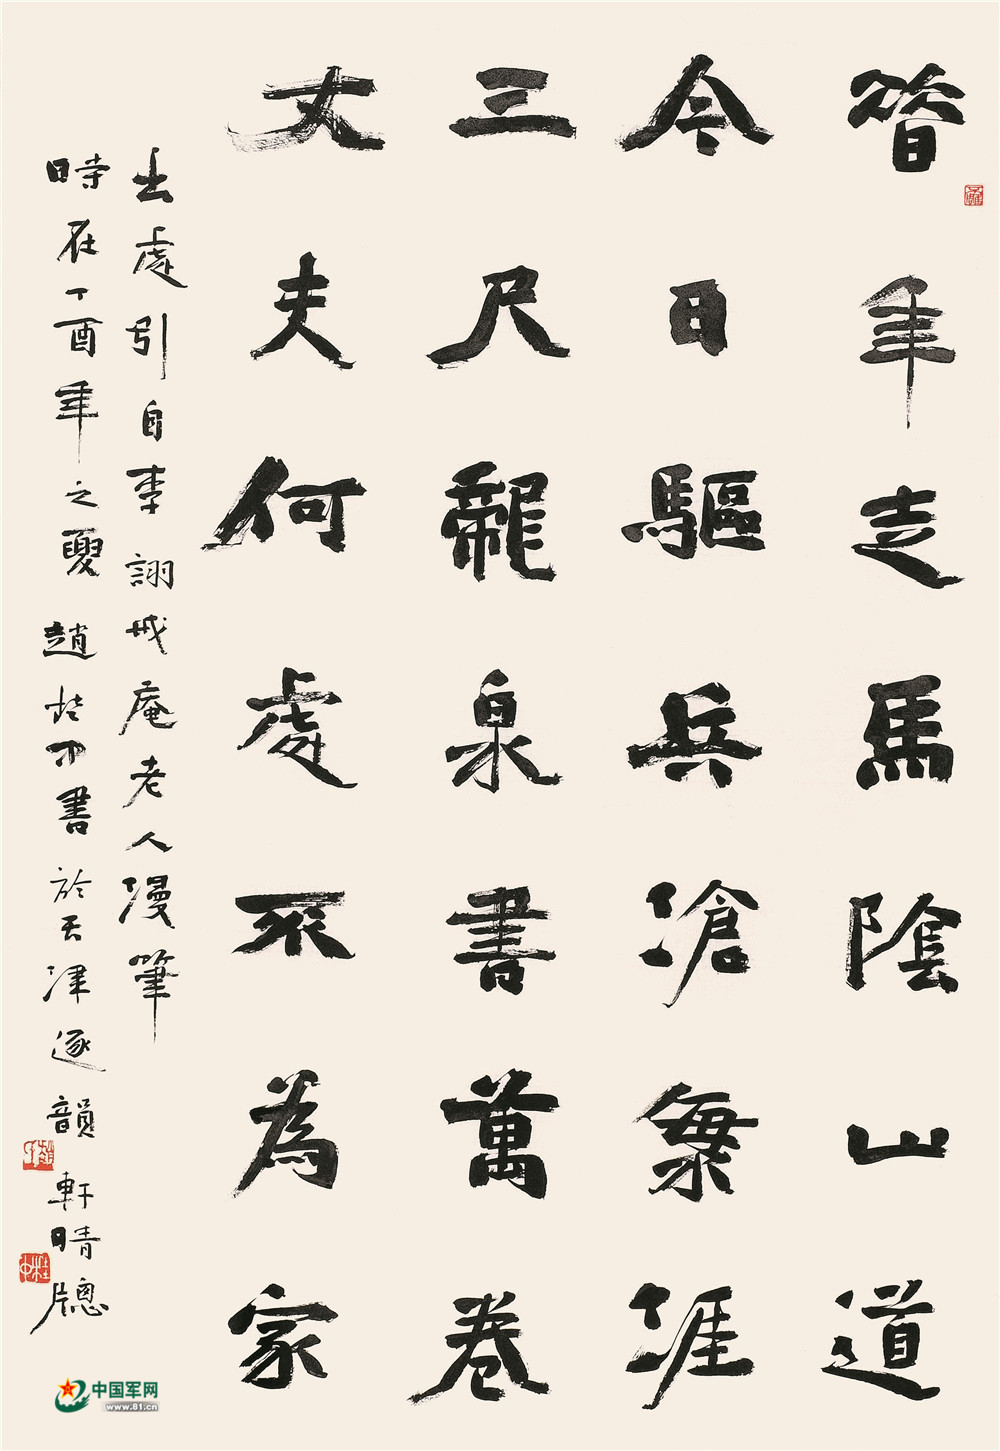 昔年走馬陰山道
今日驅兵滄海涯
三尺龍泉書萬卷
丈夫何處不為家
出處引自李詡戒庵老人漫筆
時在丁酉年之夏趙書於天津逐韻軒晴牎
中国军网
www.81.cn